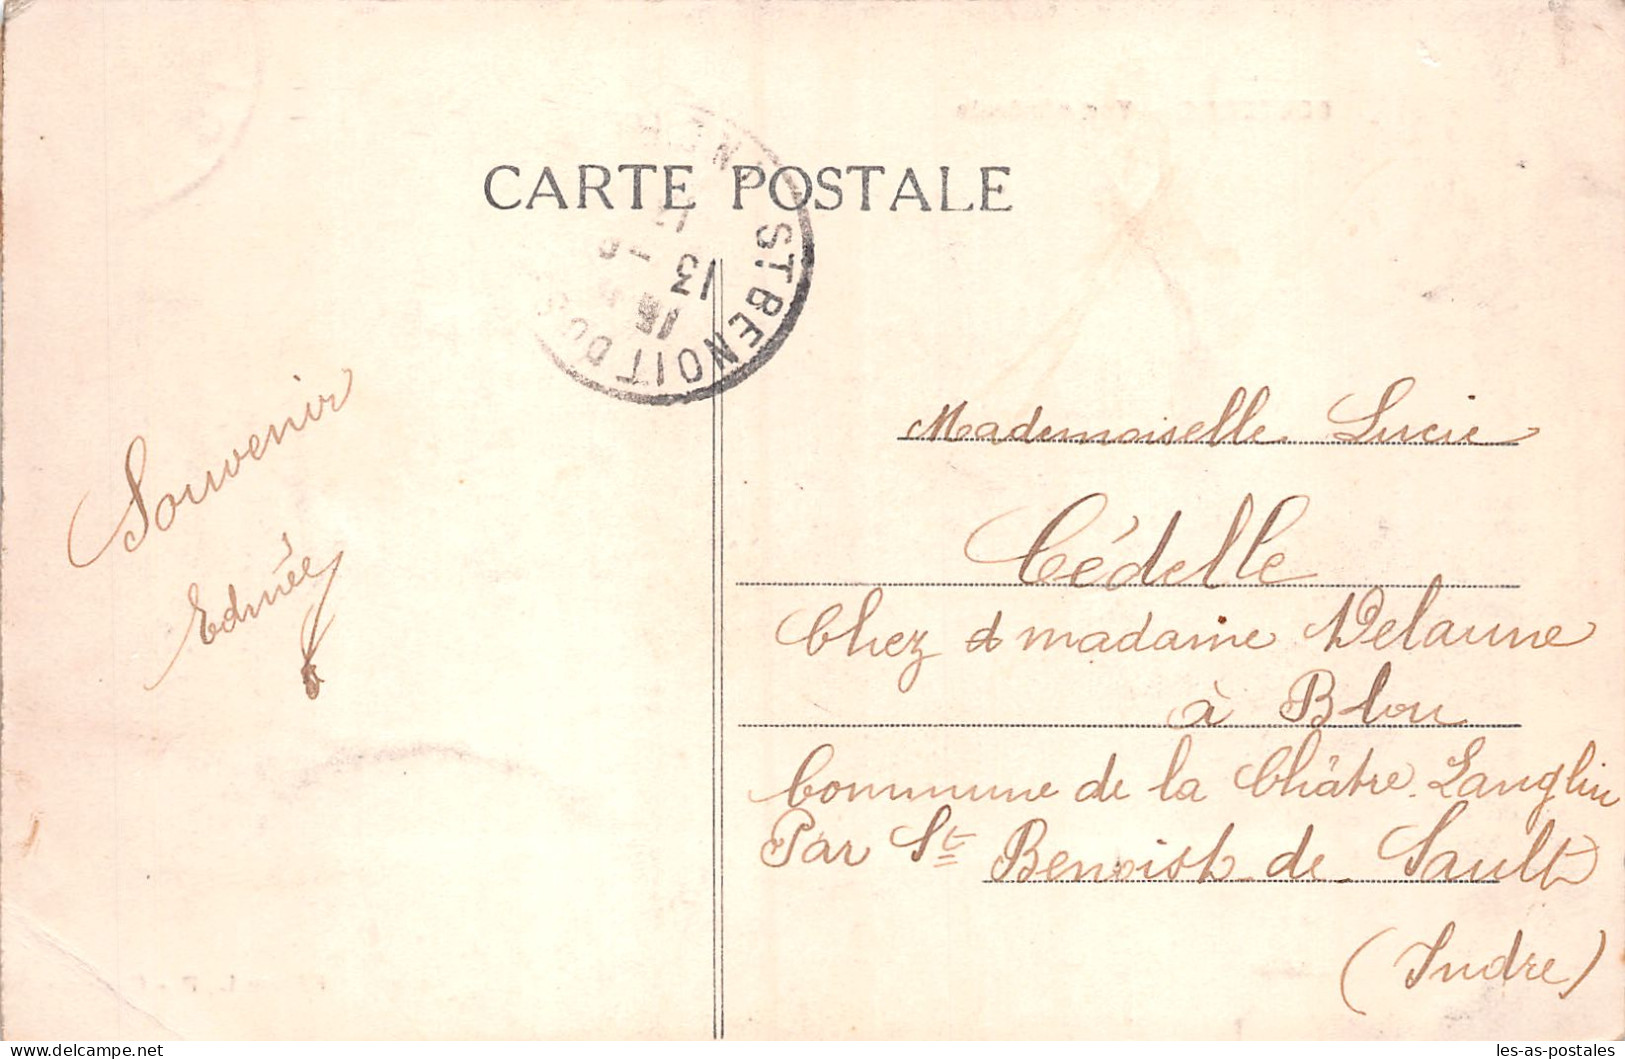 CARTE POSTALE
ST BENOIT DU
13
Souvenir
Ednée
Mademoiselle Lucie
Cédelle
Chez madame Delaune
à Blou
Commune de la Châtre Langlin
Par St Benoist de Sault
(Indre)
delcampe.net
les-as-postales